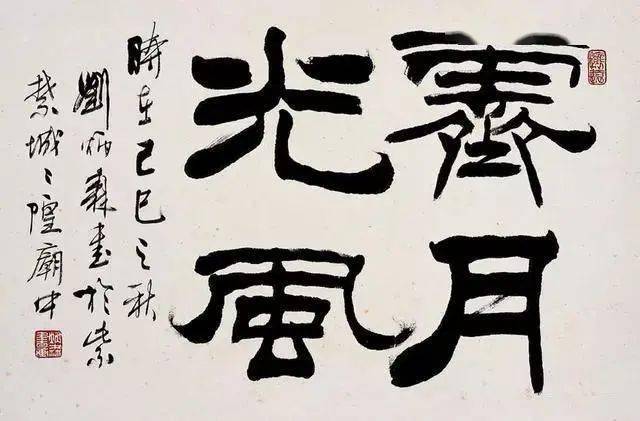 霽月
光風
時在己巳之秋
劉炳森書於紫
禁城〻隍廟中